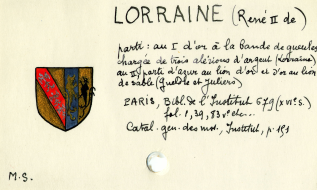 LORRAINE (René II de)
parti : au I d'or à la bande de gueules
chargée de trois alérions d'argent (Lorraine)
au II parti d'azur au lion d'or et d'or au lion
de sable (Gueldre et Juliers)
PARIS, Bibl. de l'Institut 679 (XVIe s.)
fol. 1, 39, 83 vº etc...
Catal. gén. des mss., Institut, p. 151
M.S.